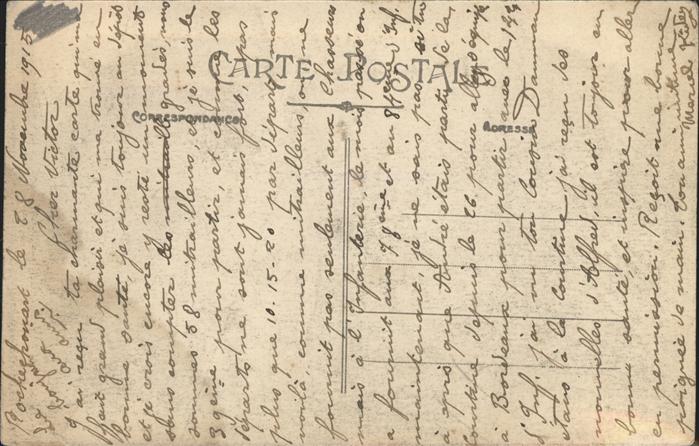 CARTE POSTALE
CORRESPONDANCE
ADRESSE
Rochechouart le 28 Novembre 1915
Cher Victor
J'ai reçu ta charmante carte qui m'a
fait grand plaisir et qui me trouve en
bonne santé, je suis toujours au dépôt
et je crois encore y resté un moment
sans compter les gradés, nous
sommes 58 mitrailleurs, et je suis le
39ème pour partir, et comme les
départs ne sont jamais fort, pas
plus que 10-15-20 par départ, mais
voilà, comme mitrailleurs on ne
fournit pas seulement aux Chasseurs
mais à l'Infanterie, le mois passé on
a fournit aux 78ème et au 8 ème d'Inf.
maintenant je ne sais pas si tu
a apris que André étais parti de la
Courtine depuis le 26 pour aller
à Bordeaux pour partir avec le 144
d'Inf. j'ai vu ton Cousin
étans à la Courtine, j'ai reçu des
nouvelles d'Alfred, il est toujour en
bonne santé, et inspire pour aller
en permission. Reçoit une bonne
poignée de main. Ton ami